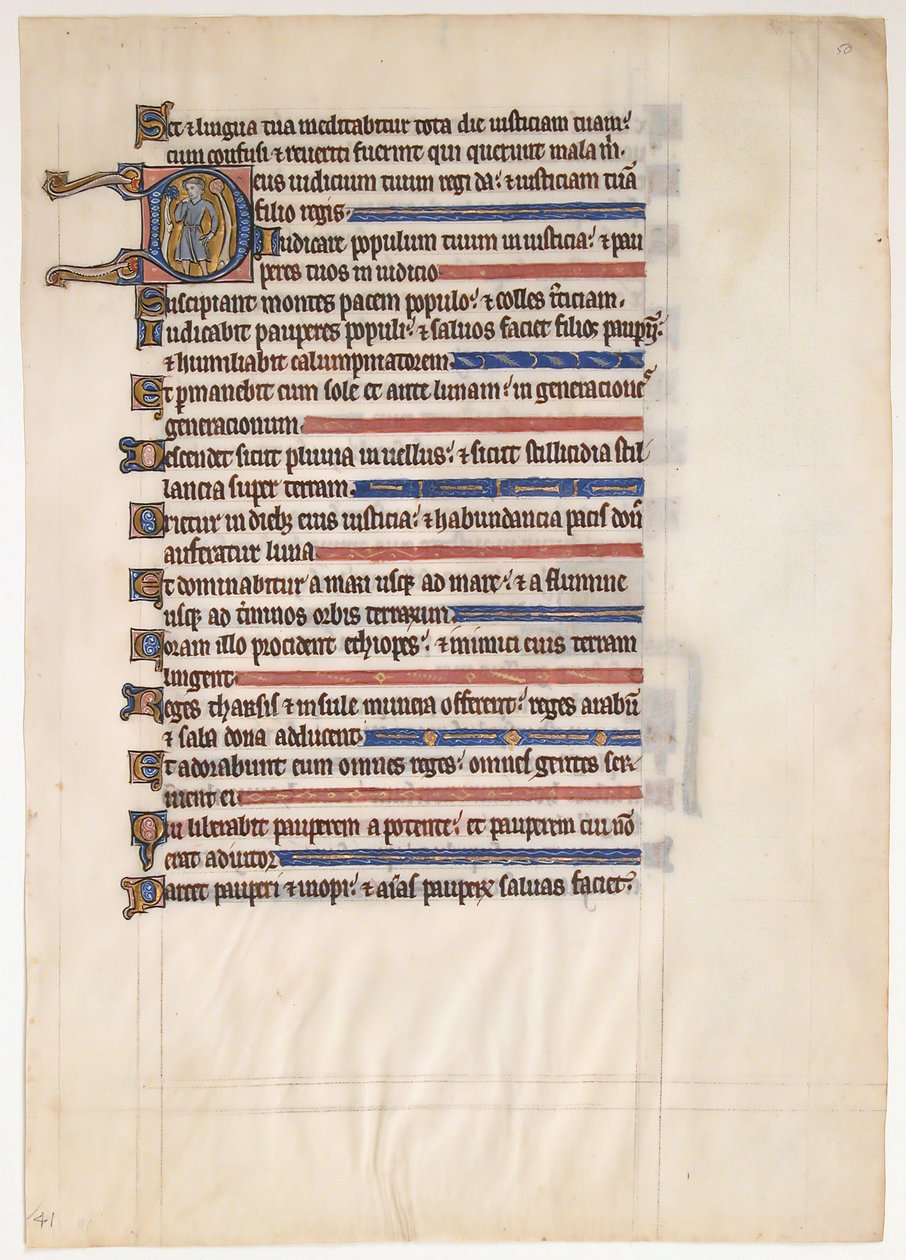 50
Set & lingua tua meditabitur tota die iusticiam tuam:
cum confusi & reuerti fuerint qui querunt mala m̄.
Deus iudicium tuum regi da: & iusticiam tuā
filio regis.
Iudicare populum tuum in iusticia: & pau
peres tuos in iudicio
Suscipiant montes pacem populo: & colles
Iudicabit pauperes populi: & saluos faciet filios
& humiliabit calumpniatorem.
Et ꝑmanebit cum sole et ante lunam: in generacione
generacionum.
Descendet sicut pluuia in uellus: & sicut stillicidia stil
lancia super terram.
Orietur in dieb; eius iusticia: & habundancia pacis don̄
auferatur luna
Et dominabitur a mari usq; ad mare: & a flumine
usq; ad t̄minos orbis terrarum.
Coram illo procident ethiopes: & inimici eius terram
lingent.
Reges tharsis & insule munera offerent: reges arabū
& saba dona adducent.
Et adorabunt eum omnes reges: omnes gentes ser
uient ei
Qui liberabit pauperem a potente: et pauperem cui nō
erat adiutor
Parcet pauperi & inopi: & aīas pauperꝝ saluas faciet:
41